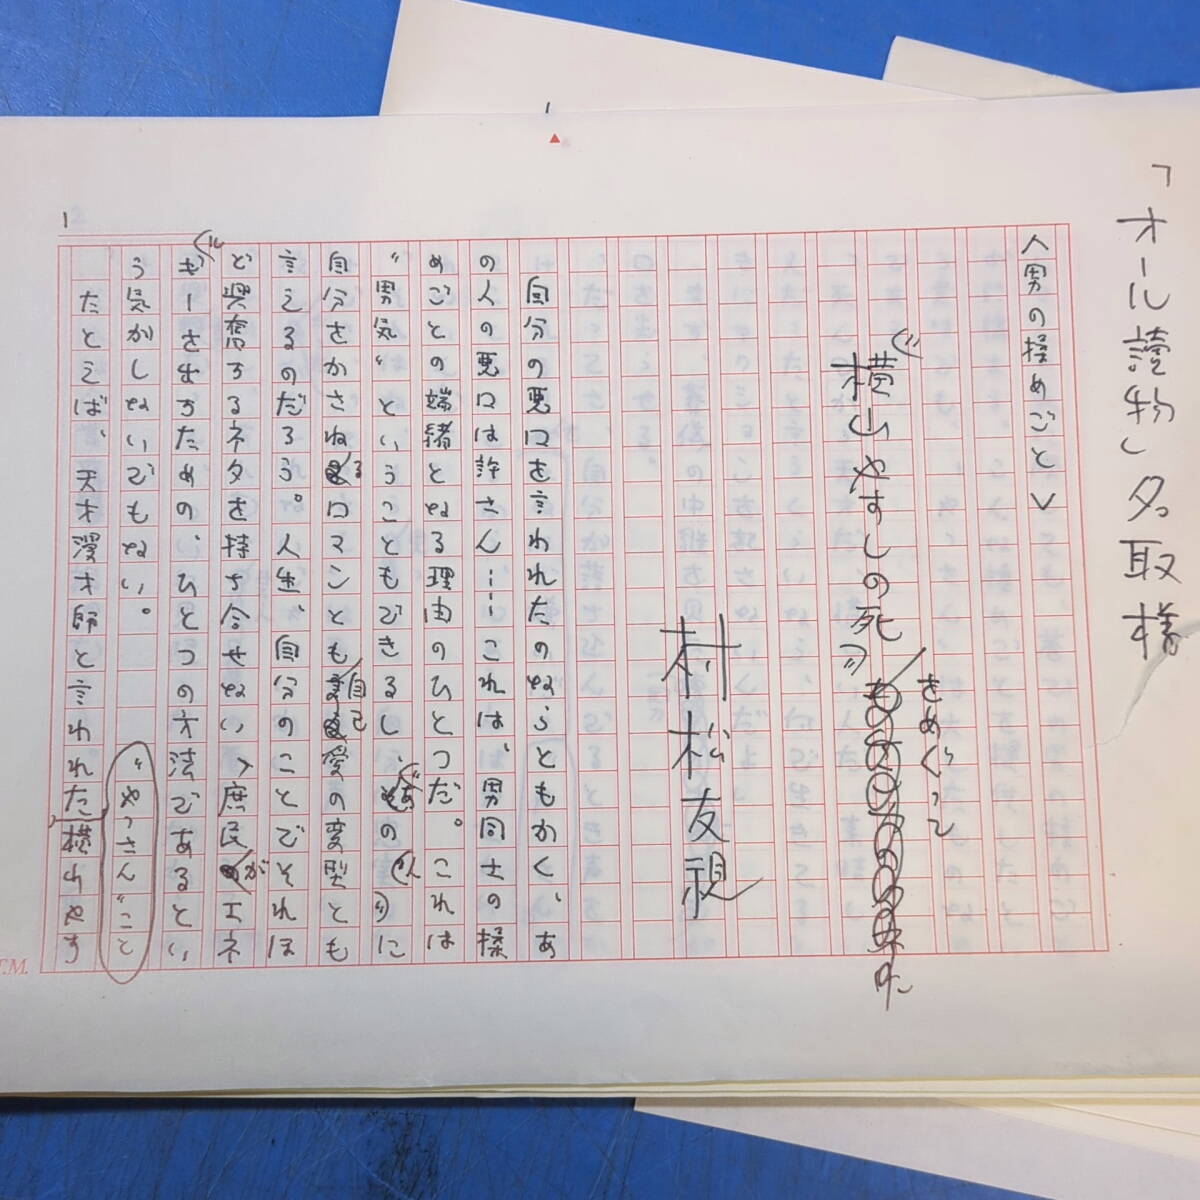 「オール讀物」名取様
1
1
人男の揉めごとV
〝横山やすしの死〟をめぐって
村松友視
自分の悪口を言われたのならともかく、あ
の人の悪口は許さん……これは、男同士の揉
めごとの端緒となる理由のひとつだ。これは
〝男気〟ということもできるし、そのぶん、に
自分をかさねるロマンとも自己愛の変型とも
言えるのだろう。人生、自分のことでそれほ
ど興奮するネタを持ち合せない庶民がエネ
ルギーを出すための、ひとつの方法であるとい
う気がしないでもない。
〝やっさん〟こと
たとえば、天才漫才師と言われた横山やす
T.M.